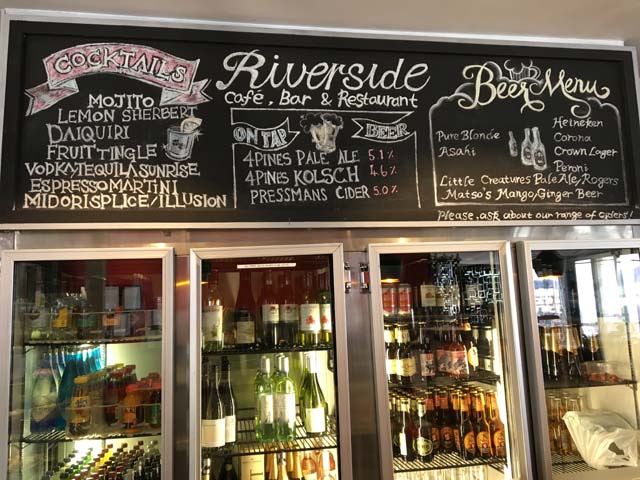 COCKTAILS
MOJITO
LEMON SHERBERT
DAIQUIRI
FRUIT TINGLE
VODKA TEQUILA SUNRISE
ESPRESSO MARTINI
MIDORI SPLICE/ILLUSION
Riverside
Café, Bar & Restaurant
ON TAP BEER
4PINES PALE ALE 5.1%
4PINES KOLSCH 4.6%
PRESSMANS CIDER 5.0%
Beer Menu
Heineken
Pure Blonde Corona
Asahi Crown Lager
Peroni
Little Creatures Pale Ale/Rogers
Matso's Mango/Ginger Beer
Please, ask about our range of Ciders!